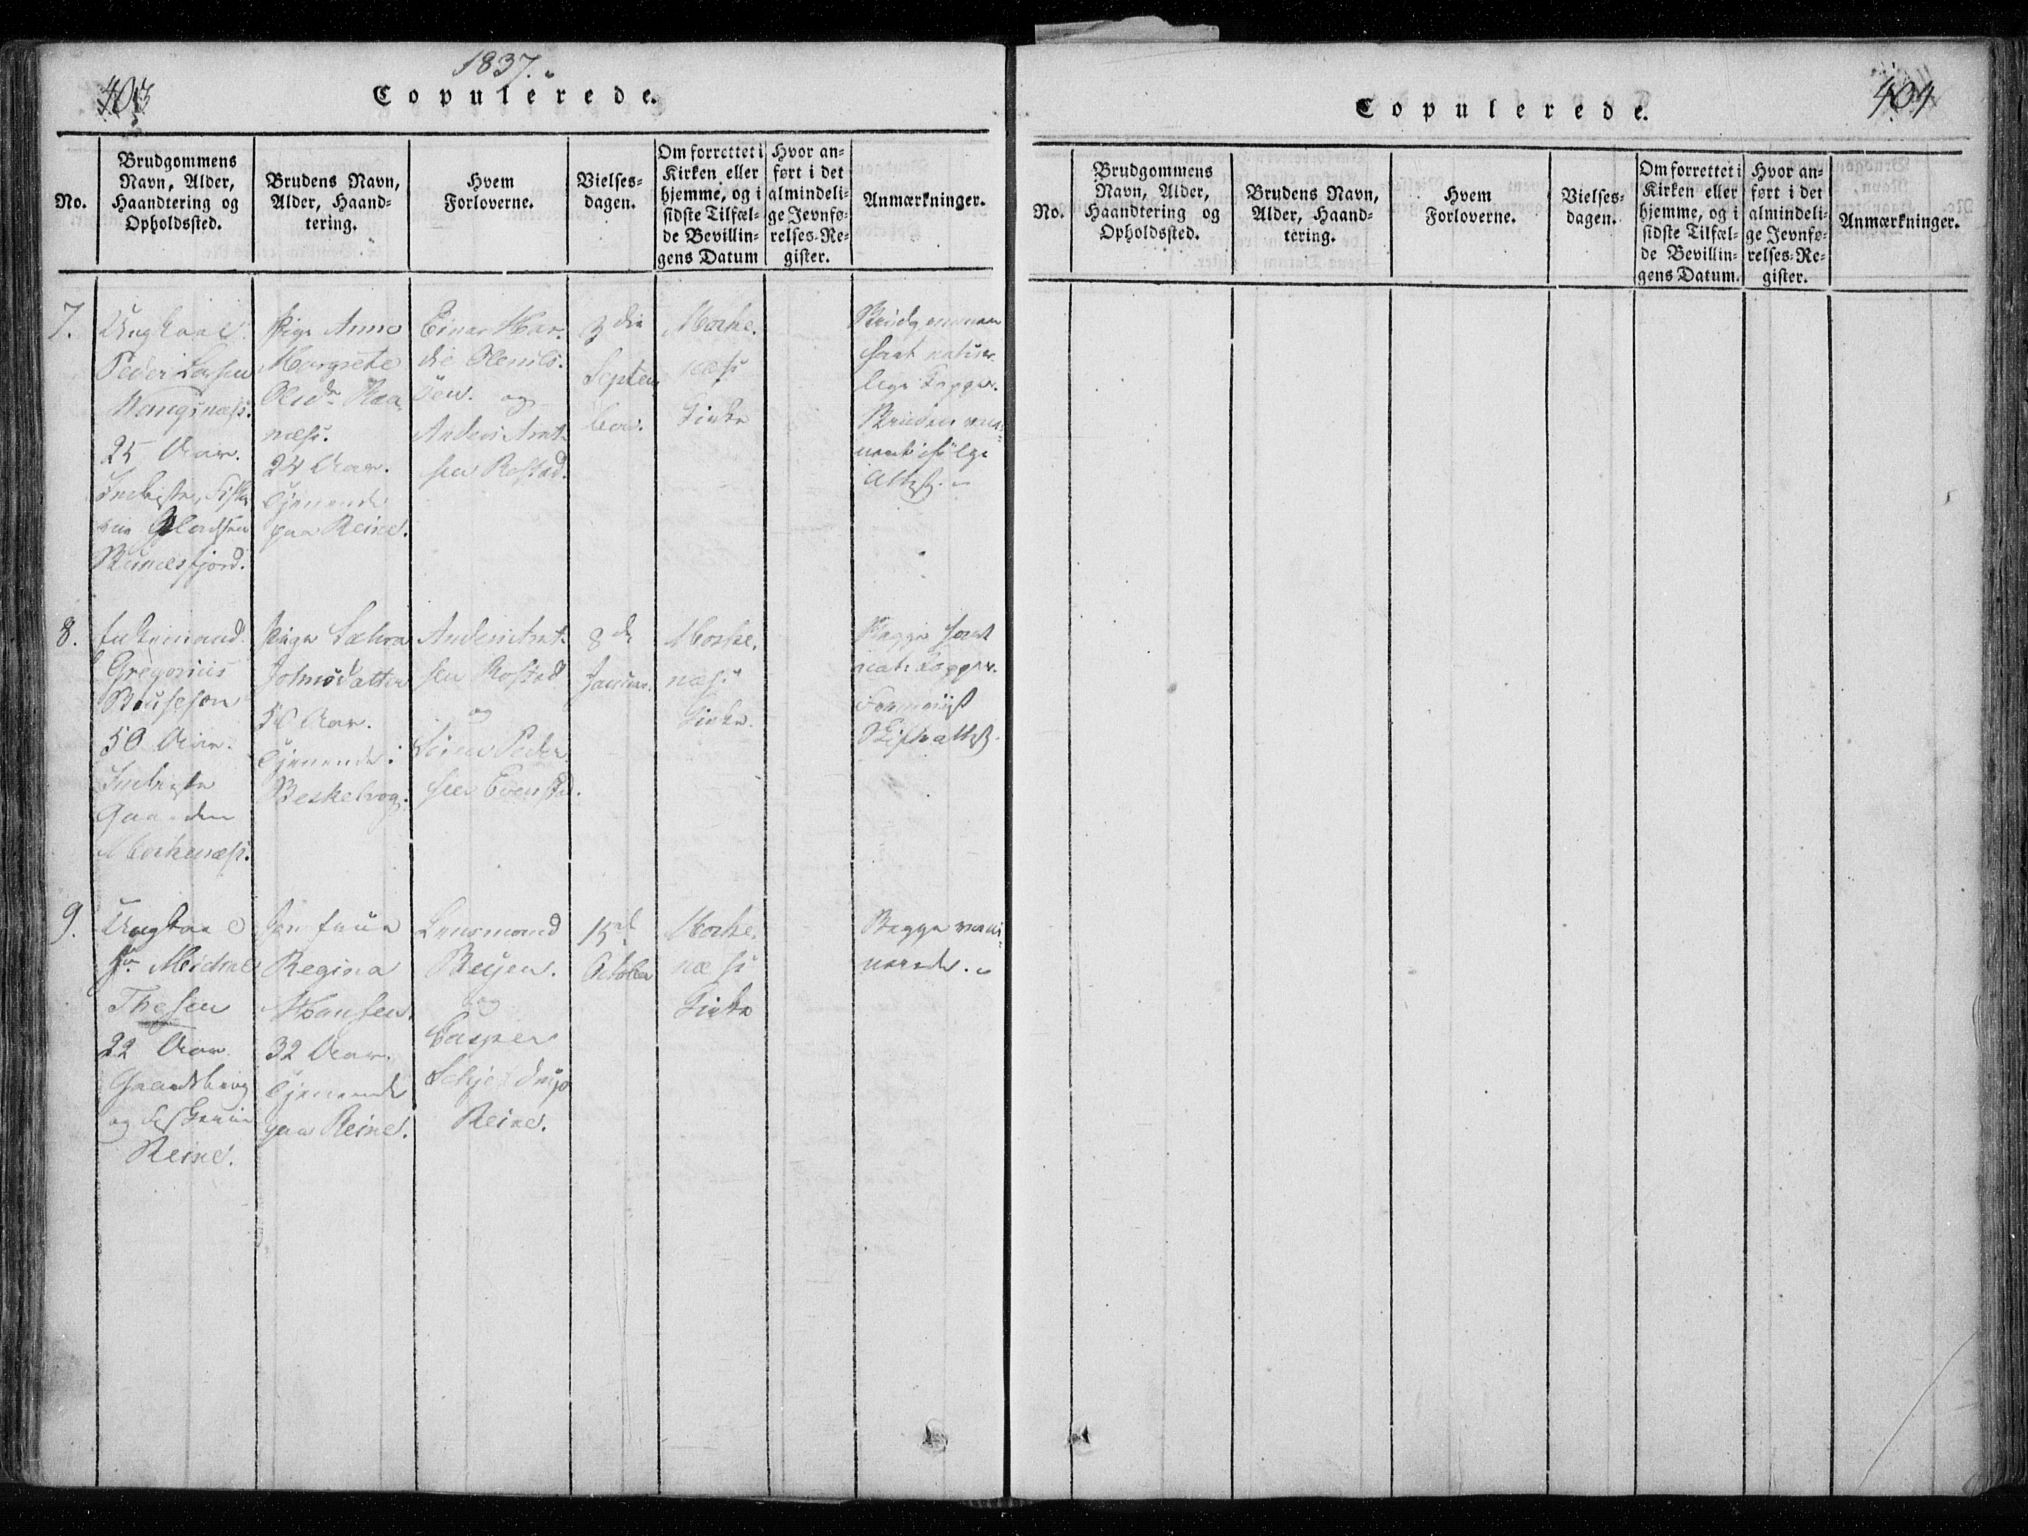 403
1837.
Copulerede.
No.
Brudgommens
Navn, Alder,
Haandtering og
Opholdssted.
Brudens Navn,
Alder, Haand-
tering.
Hvem
Forloverne.
Vielses-
dagen.
Om forrettet i
Kirken eller
hjemme, og i
sidste Tilfæl-
de Bevillin-
gens Datum
Hvor an-
ført i det
almindeli-
ge Jevnfø-
relses-Re-
gister.
Anmærkninger.
7.
Ungkarl
Peder
25 Aar.
Inderste,
Reinesfjord.
Pige Anne
Margrete
næs.
24 Aar.
Tjenende
paa Reine.
Einar
og
Anders Arnt-
sen Rostad.
3die
Septem
ber.
Moske-
næs
Kirke
Brudgommen
havt natur-
lige Kopper.
Bruden vaci-
neret ifølge
Attest.
8.
Enkemand
Gregorius
50 Aar.
Inderste
Gaarden
Moskenæs.
Pige
Johnsdatter
50 Aar.
Tjenende i
Anders Arnt-
sen Rostad
og
Sören Peder
sen Evenstad.
8de
Moske-
næs
Kirke.
Begge havt
nat: Kopper.
Skifteattest.
9.
Ungkarl
Hr. Michael
Thesen
22 Aar
Reine.
Jomfrue
Regina
Hansen.
32 Aar.
Tjenende
paa Reine.
Lensmand
Beyer.
og
Casper
Schjelderup
Reine.
15de
October
Moske-
næs
Kirke
Begge vacci-
nerede.
404
Copulerede.
No.
Brudgommens
Navn, Alder,
Haandtering og
Opholdssted.
Brudens Navn,
Alder, Haand-
tering.
Hvem
Forloverne.
Vielses-
dagen.
Om forrettet i
Kirken eller
hjemme, og i
sidste Tilfæl-
de Bevillin-
gens Datum.
Hvor an-
ført i det
almindeli-
ge Jevnfø-
relses-Re-
gister.
Anmærkninger.